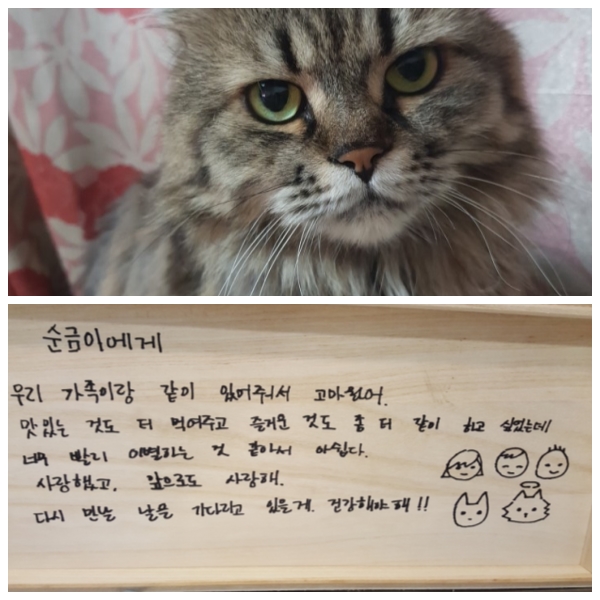 순금이에게
우리 가족이랑 같이 있어줘서 고마웠어.
맛있는 것도 더 먹어주고 즐거운 것도 좀 더 같이 하고 싶었는데
너무 빨리 이별하는 것 같아서 아쉽다.
사랑했고, 앞으로도 사랑해.
다시 만날 날을 기다리고 있을게. 건강해야 해!!